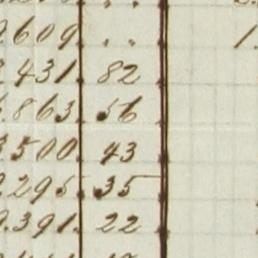 .609. " "
.431. 82
.863. 56
.500. 43
.295. 35
.391. 22